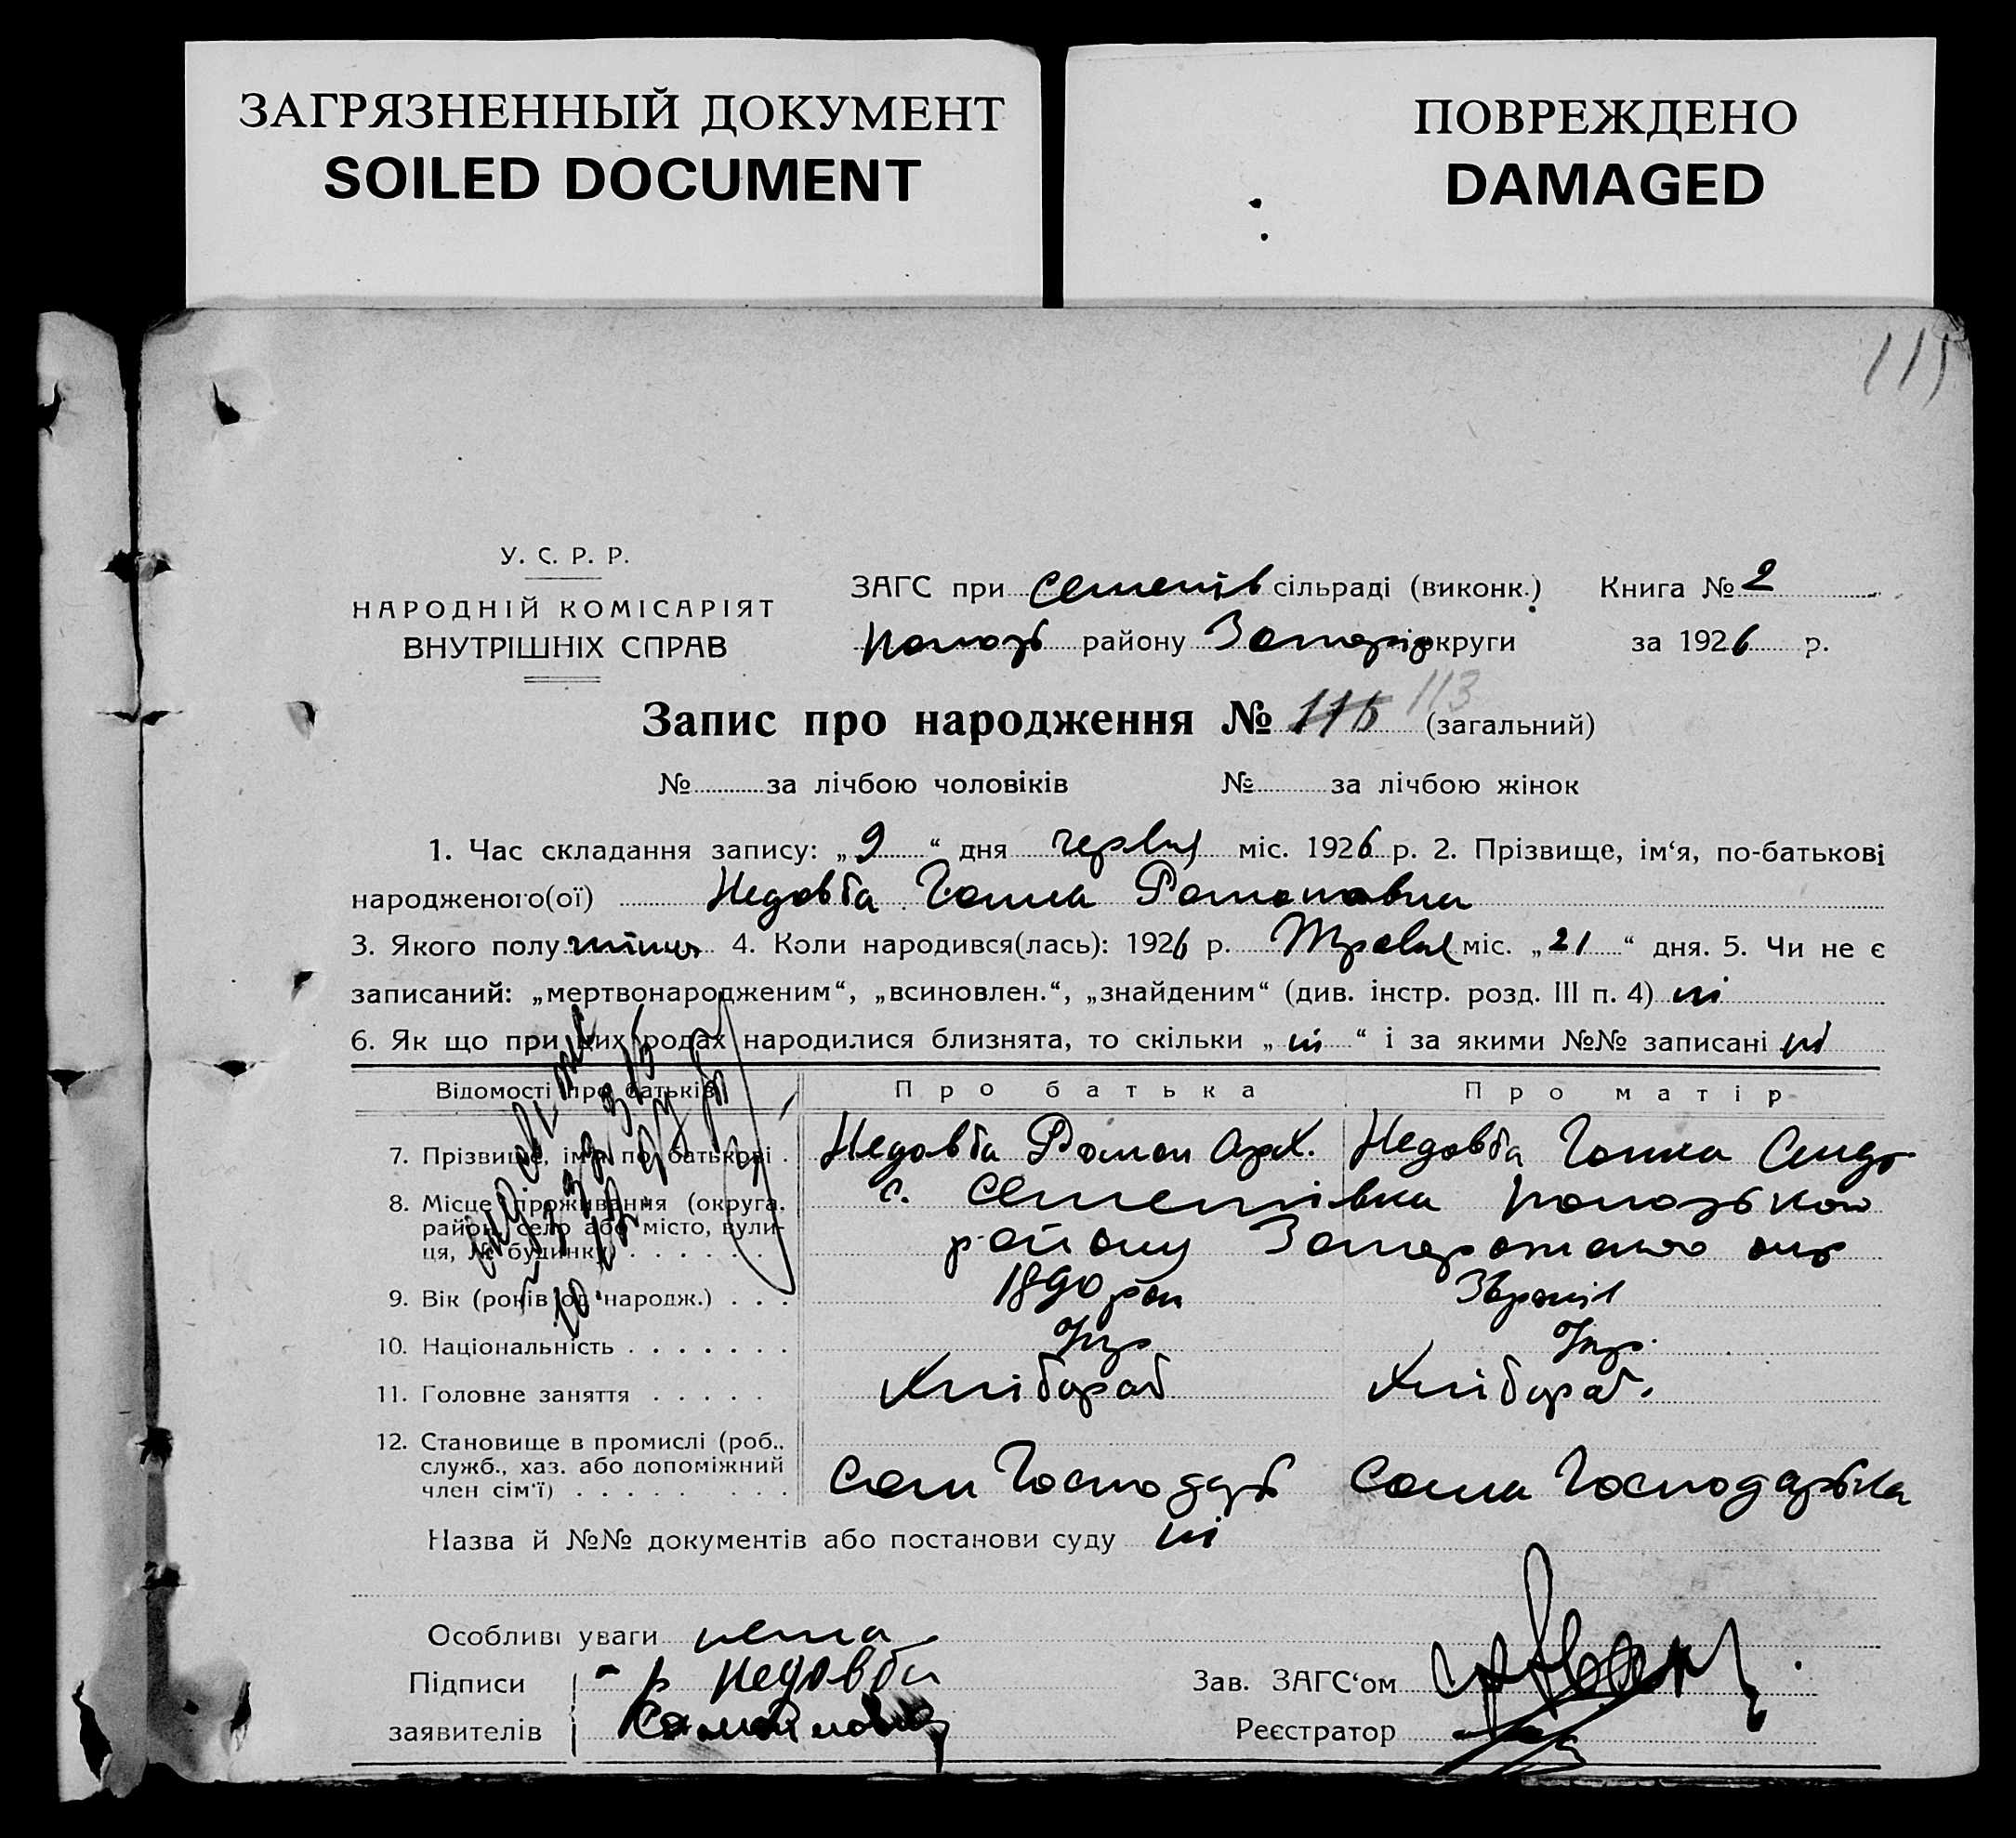 ЗАГРЯЗНЕННЫЙ ДОКУМЕНТ
SOILED DOCUMENT
ПОВРЕЖДЕНО
DAMAGED
115
У. С. Р. Р.
НАРОДНІЙ КОМІСАРІЯТ
ВНУТРІШНІХ СПРАВ
ЗАГС при Семенів сільраді (виконк.) Книга № 2
району округи за 1926 р.
Запис про народження № 115 113 (загальний)
№ за лічбою чоловіків № за лічбою жінок
1. Час складання запису: „9“ дня червня міс. 1926 р. 2. Прізвище, ім‘я, по-батькові
народженого(ої) Недовба Ганна Романовна
3. Якого полу жіноч 4. Коли народився(лась): 1926 р. Травня міс. „21“ дня. 5. Чи не є
записаний: „мертвонародженим“, „всиновлен.“, „знайденим“ (див. інстр. розд. III п. 4) ні
6. Як що при цих родах народилися близнята, то скільки „ні“ і за якими №№ записані ні
Відомості про батьків Про батька Про матір
7. Прізвище, ім‘я по батькові . Недовба Роман Арх. Недовба Ганна Сидо
8. Місце проживання (округа, с. Семенівка
район, село або місто, вули-
ця, № будинку) . . . . . . району Запорожского окр
9. Вік (років од народж.) . . . 1890 рок
10. Національність . . . . . . . Укр Укр.
11. Головне заняття . . . . . Хлібороб Хлібороб.
12. Становище в промислі (роб.,
служб., хаз. або допоміжний
член сім‘ї) . . . . . . . . . Сам Господарь Сама Господарька
Назва й №№ документів або постанови суду ні
Особливі уваги нема
Підписи р Недовба Зав. ЗАГС‘ом
заявителів Реєстратор